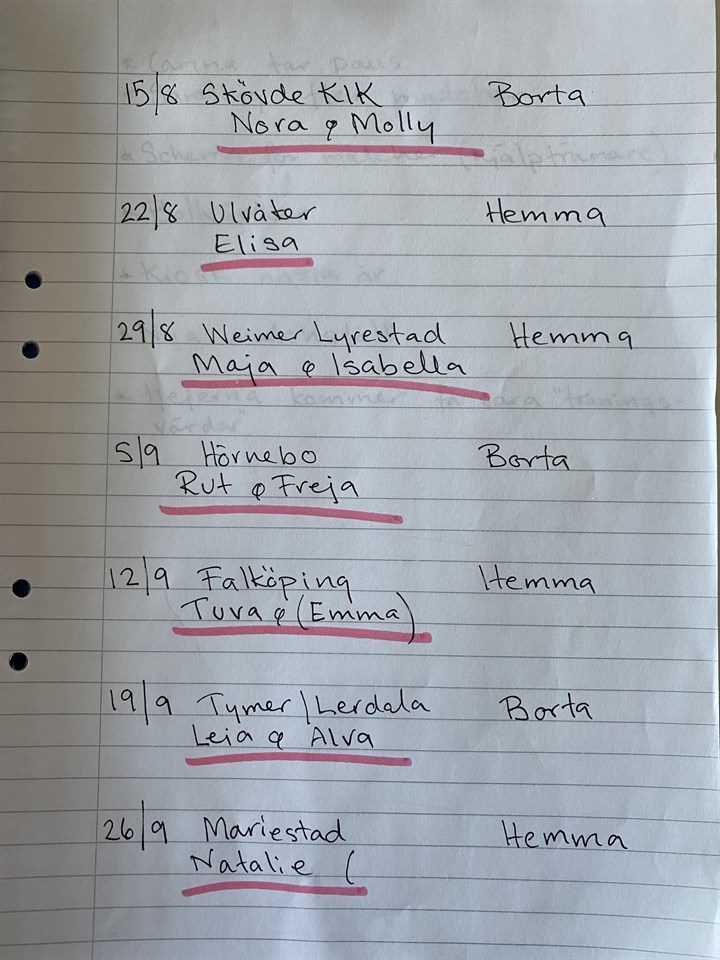 15/8 Skövde KIK Borta
Nora & Molly
22/8 Ulvåter Hemma
Elisa
29/8 Weimer Lyrestad Hemma
Maja & Isabella
5/9 Hörnebo Borta
Rut & Freja
12/9 Falköping Hemma
Tuva & (Emma)
19/9 Tymer/Lerdala Borta
Leia & Alva
26/9 Mariestad Hemma
Natalie (